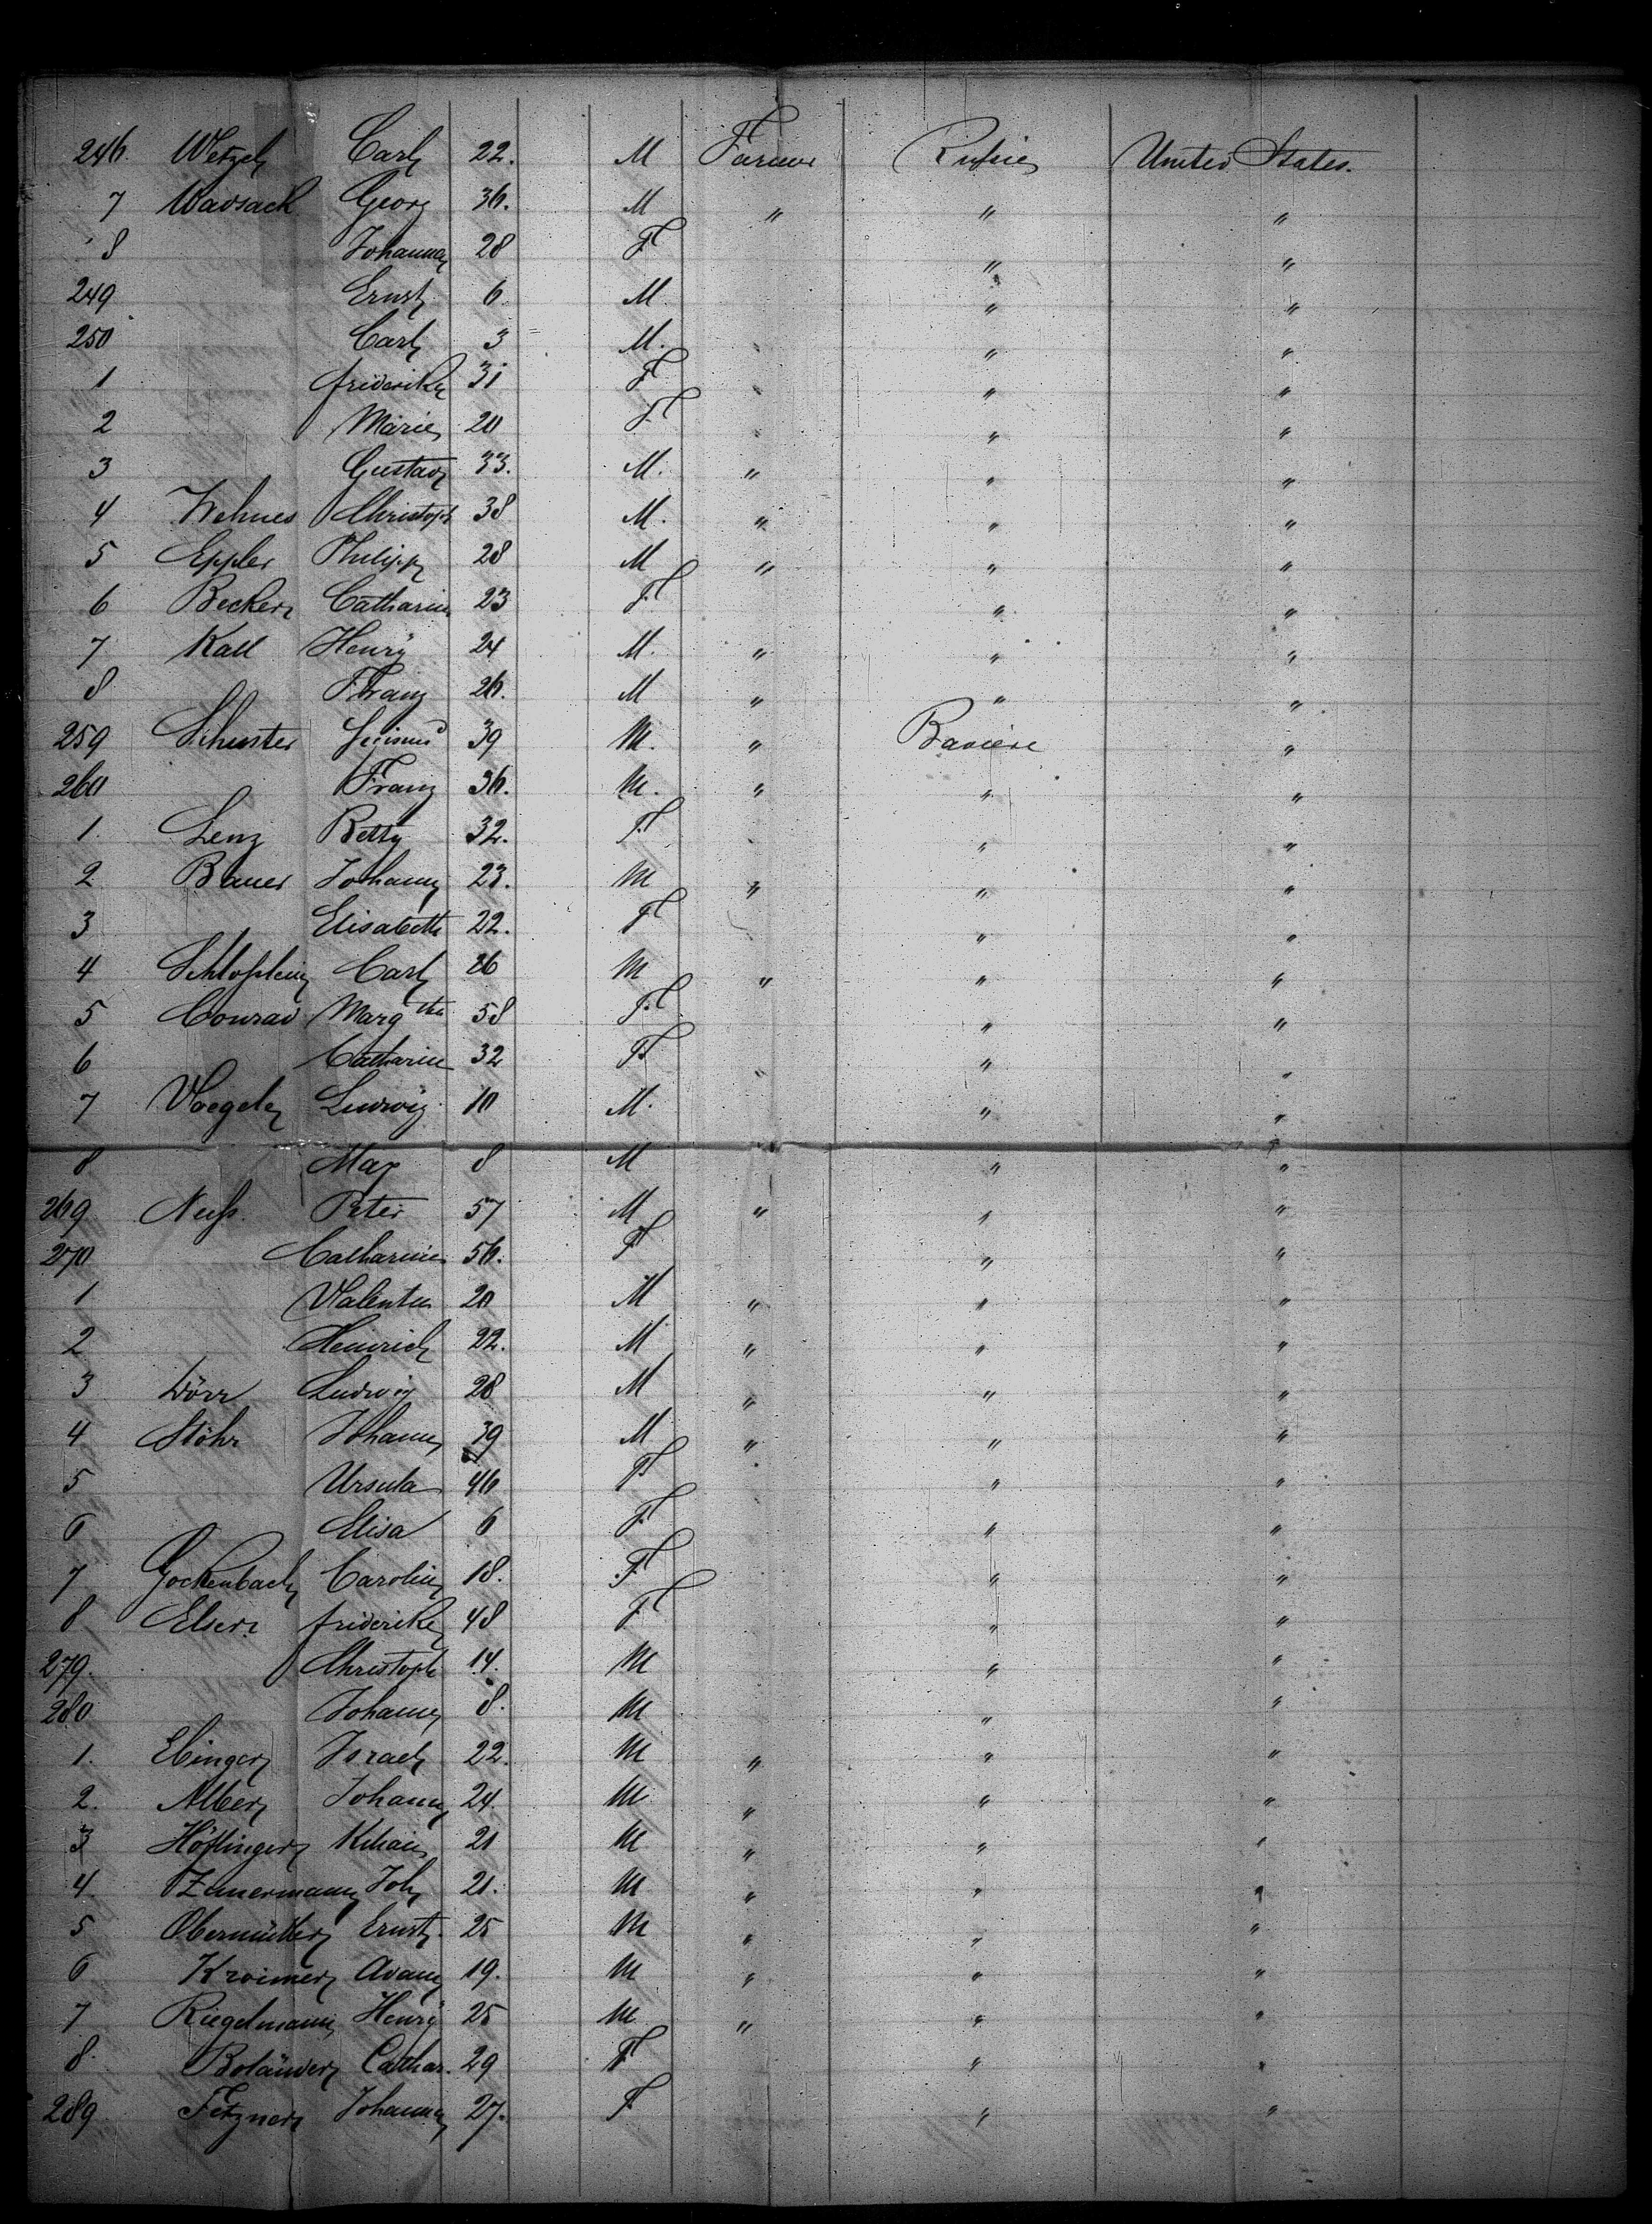 246. Wetzel Carl 22. M Farmer Russie United States.
7 Wadsack Georg 36. M " " "
8 Johanna 28 F " "
249 Ernst 6 M. " "
250 Carl 3 M. " "
1 friderike 31 F " "
2 Marie 20 F " "
3 Gustav 33. M. " " "
4 Christoph 38 M. " " "
5 Eppler Philipp 28 M " " "
6 Becker Catharine 23 F " "
7 Kall Henry 24 M. " " "
8 Franz 26. M " " "
259 Schuster 39 M. " Baviere "
260 Franz 36. M. " " "
1. Lenz Betty 32. F " "
2 Bauer Johann 23. M " " "
3 Elisabeth 22. F " "
4 Schloßlein Carl 26 M " " "
5 Conrad Margtha 58 F " "
6 Catharine 32 F " "
7 Voegele Ludwig 10 M. " "
8 Max 8 M " "
269 Neuß Peter 57 M " " "
270 Catharine 56. F " "
1 Valentin 20 M " " "
2 Heinrich 22. M " " "
3 Dörr Ludwig 28 M " " "
4 Stöhr Johann 39 M " " "
5 Ursula 46 F " "
6 Elisa 6 F " "
7 Gockenbach Carolin 18. F " "
8 Elser friderike 48 F " "
279. Christoph 14. M " "
280 Johann 8. M " "
1. Ebinger Israel 22. M " " "
2. Alber Johann 24. M " " "
3 Höflinger Kilian 21 M " " "
4 Zimermann Joh 21. M " " "
5 Obermüller Ernst 25 M " " "
6 Kroimer Adam 19. M " " "
7 Riegelmann Henry 25 M " " "
8. Boländer Cathar. 29 F " "
289 Fetzner Johanna 27. F " "